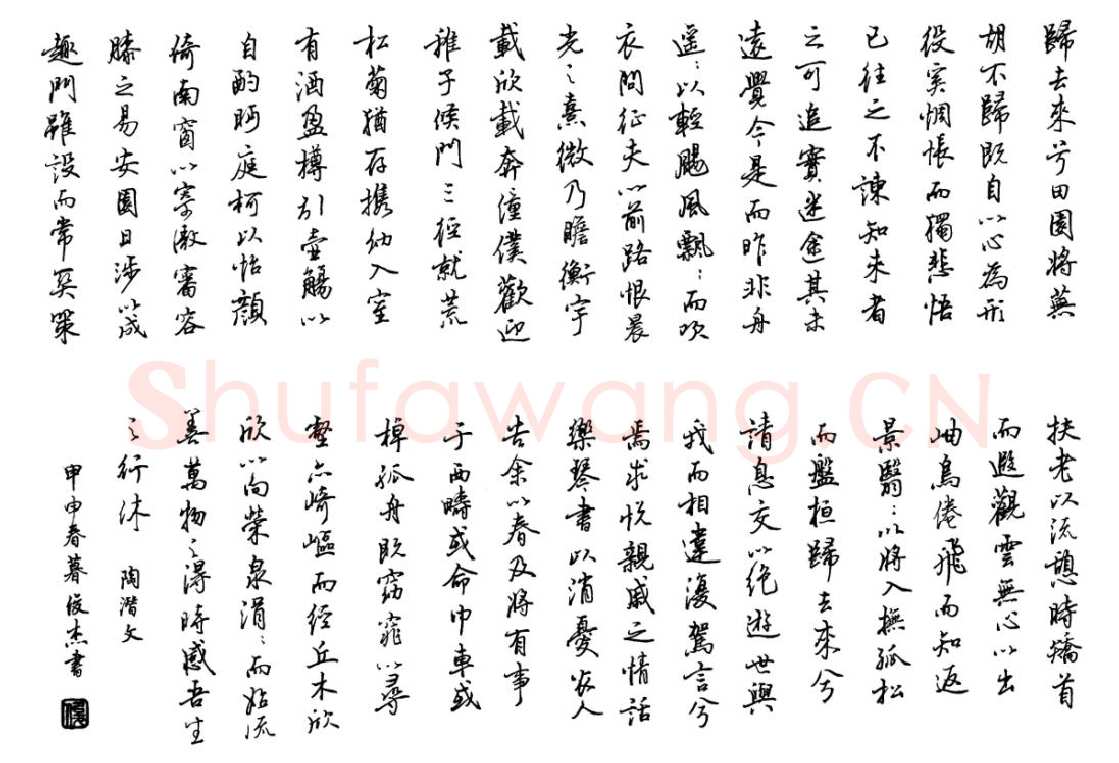 歸去來兮田園將蕪
胡不歸既自以心為形
役奚惆悵而獨悲悟
已往之不諫知來者
之可追實迷途其未
遠覺今是而昨非舟
遥:以輕颺風飄:而吹
衣問征夫以前路恨晨
光之熹微乃瞻衡宇
載欣載奔僮僕歡迎
稚子候門三徑就荒
松菊猶存携幼入室
有酒盈樽引壺觴以
自酌眄庭柯以怡顏
倚南窗以寄傲審容
膝之易安園日涉以成
趣門雖設而常關策
Shufawang.CN
扶老以流憩時矯首
而遐觀雲無心以出
岫鳥倦飛而知返
景翳:以將入撫孤松
而盤桓歸去來兮
請息交以絶遊世與
我而相違復駕言兮
焉求悅親戚之情話
樂琴書以消憂農人
告余以春及將有事
于西疇或命巾車或
棹孤舟既窈窕以尋
壑亦崎嶇而經丘木欣
欣以向榮泉涓:而始流
善萬物之得時感吾生
之行休 陶潛文
甲申春暮俊杰書